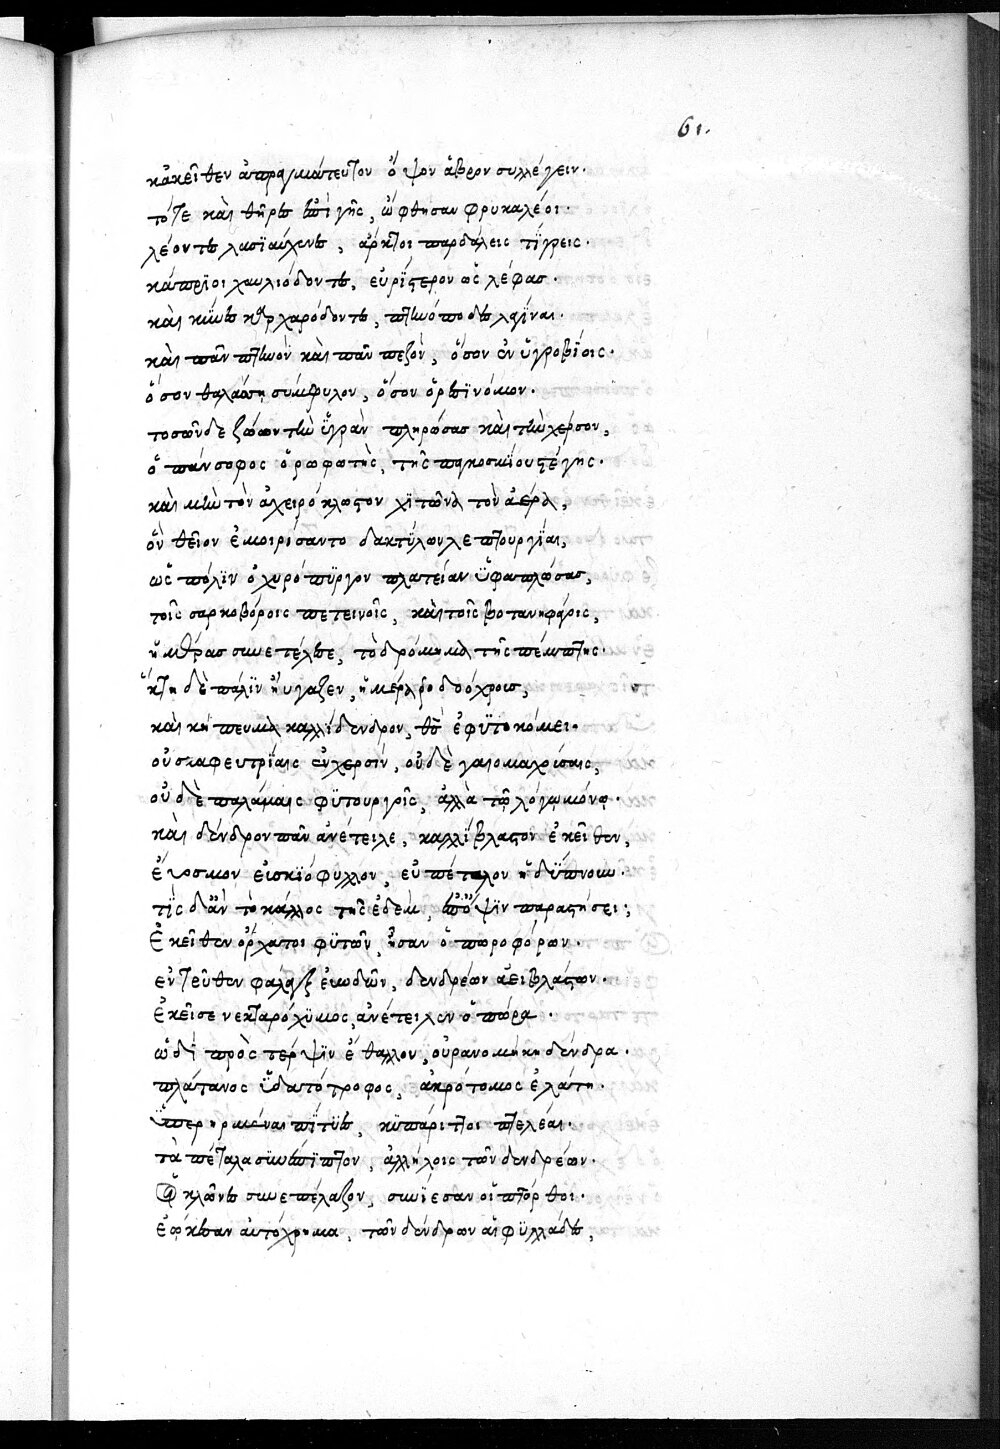 61.
κἀκεῖθεν ἀπραγμάτευτον ὄψον ἁβρὸν συλλέγειν·
τότε καὶ θῆρες ἐπὶ γῆς, ὤφθησαν φρυκαλέοι·
λέοντες λασιαύχενες, ἄρκτοι παρδάλεις τίγρεις·
κάπριοι χαυλιόδοντες, εὐρίστερον ὡς λέφας·
καὶ κύνες καρχαρόδοντες, πτηνόποδες λαγῖναι·
καὶ πᾶν πτηνὸν καὶ πᾶν πεζὸν, ὅσον ἐν ὑγροβίοις·
ὅσον θαλάσσῃ σύμφυλον, ὅσον ὀρεινόμον·
τοσῶνδε ζώων τὴν ὑγρὰν πληρώσας καὶ τὴν χέρσον,
ὁ πάνσοφος ὀρωφωτὴς, τῆς παγκοσμίου στέγης·
καὶ μὴν τὸν ἀχειρόκλωστον χιτῶνα τὸν ἀέρα,
ὃν θεῖον ἐμοιρίσαντο δακτύλων λεπτουργίαι,
ὡς πόλιν ὀχυρόπυργον πλατεῖαν ὑφαπλώσας,
τοῖς σαρκοβόροις πετεινοῖς, καὶ τοῖς βοτανηφάγοις,
ἡμέρας συνετέλεσε, τὸ δρόμημα τῆς πέμπτης·
ἕκτη δὲ πάλιν ηὔγαζεν, ἡμέρα ῥοδόχροις,
καὶ κήπευμα καλλίδενδρον, θεὸς ἐφυτοκόμει·
οὐ σκαφευτρίαις ἐν χερσίν, οὐδὲ γαιομαχρίσαις,
οὐδὲ παλάμαις φυτουργοῖς, ἀλλὰ τῷ λόγῳ μόνῳ·
καὶ δένδρον πᾶν ἀνέτειλε, καλλίβλαστον ἐκεῖθεν,
εὔοσμον εὐσκιόφυλλον, εὐπέταλον ἡδύπνουν·
τίς δ' ἂν τὸ κάλλος τῆς ἐδὲμ, ὑπ' ὄψιν παραστήσει;
Ἐκεῖθεν ὄρχατοι φυτῶν, ἦσαν ὀπωροφόρων·
ἐντεῦθεν φάλαγξ εὐωδῶν, δενδρέων ἀειβλάστων·
Ἐκεῖσε νεκταρόχυμος, ἀνέτειλεν ὀπώρα·
ὧδί πρὸς τέρψιν ἔθαλλον, οὐρανομήκη δένδρα·
πλάτανος ὑδατότροφος, ἀκρότομος ἐλάτη·
ὑπερηρμέναι πίτυες, κυπάριττοι πτελέαι·
τὰ πέταλα συνέπιπτον, ἀλλήλοις τῶν δενδρέων·
οἱ κλῶνες συνεπέλαζον, συνῄεσαν οἱ πτόρθοι·
ἐῴκεσαν αὐτόχρημα, τῶν δένδρων αἱ φυλλάδες,